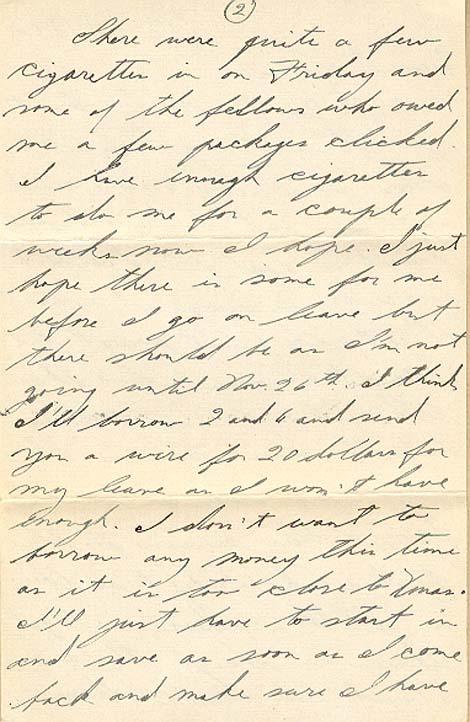 2
There were quite a few
cigarettes in on Friday and
some of the fellows who owed
me a few packages clicked.
I have enough cigarettes
to do me for a couple of
weeks now I hope. I just
hope there is some for me
before I go on leave but
there should be as I'm not
going until Nov. 26th. I think
I'll borrow 2 and 6 and send
you a wire for 20 dollars for
my leave as I won't have
enough. I don't want to
borrow any money this time
as it is too close to Xmas.
I'll just have to start in
and save as soon as I come
back and make sure I have